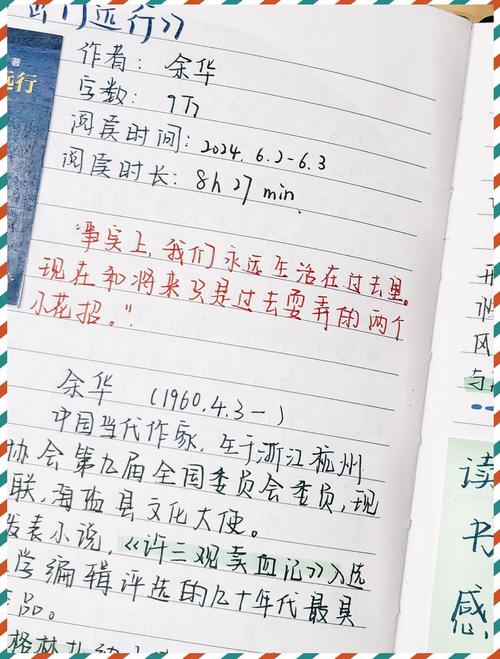 出门远行》
作者：余华
字数：9万
阅读时间：2024.6.2-6.3
阅读时长：8h 27 min.
著
远行
"事实上，我们永远生活在过去里。
现在和将来只是过去耍弄的两个
小花招。"
余华 (1960.4.3-)
中国当代作家，生于浙江杭州
协会第九届全国委员会委员，现
联，海盐县文化大使。
发表小说，《许三观卖血记》入选
学编辑评选的九十年代最具
品。
格林扎纳
风
与
读
书
感